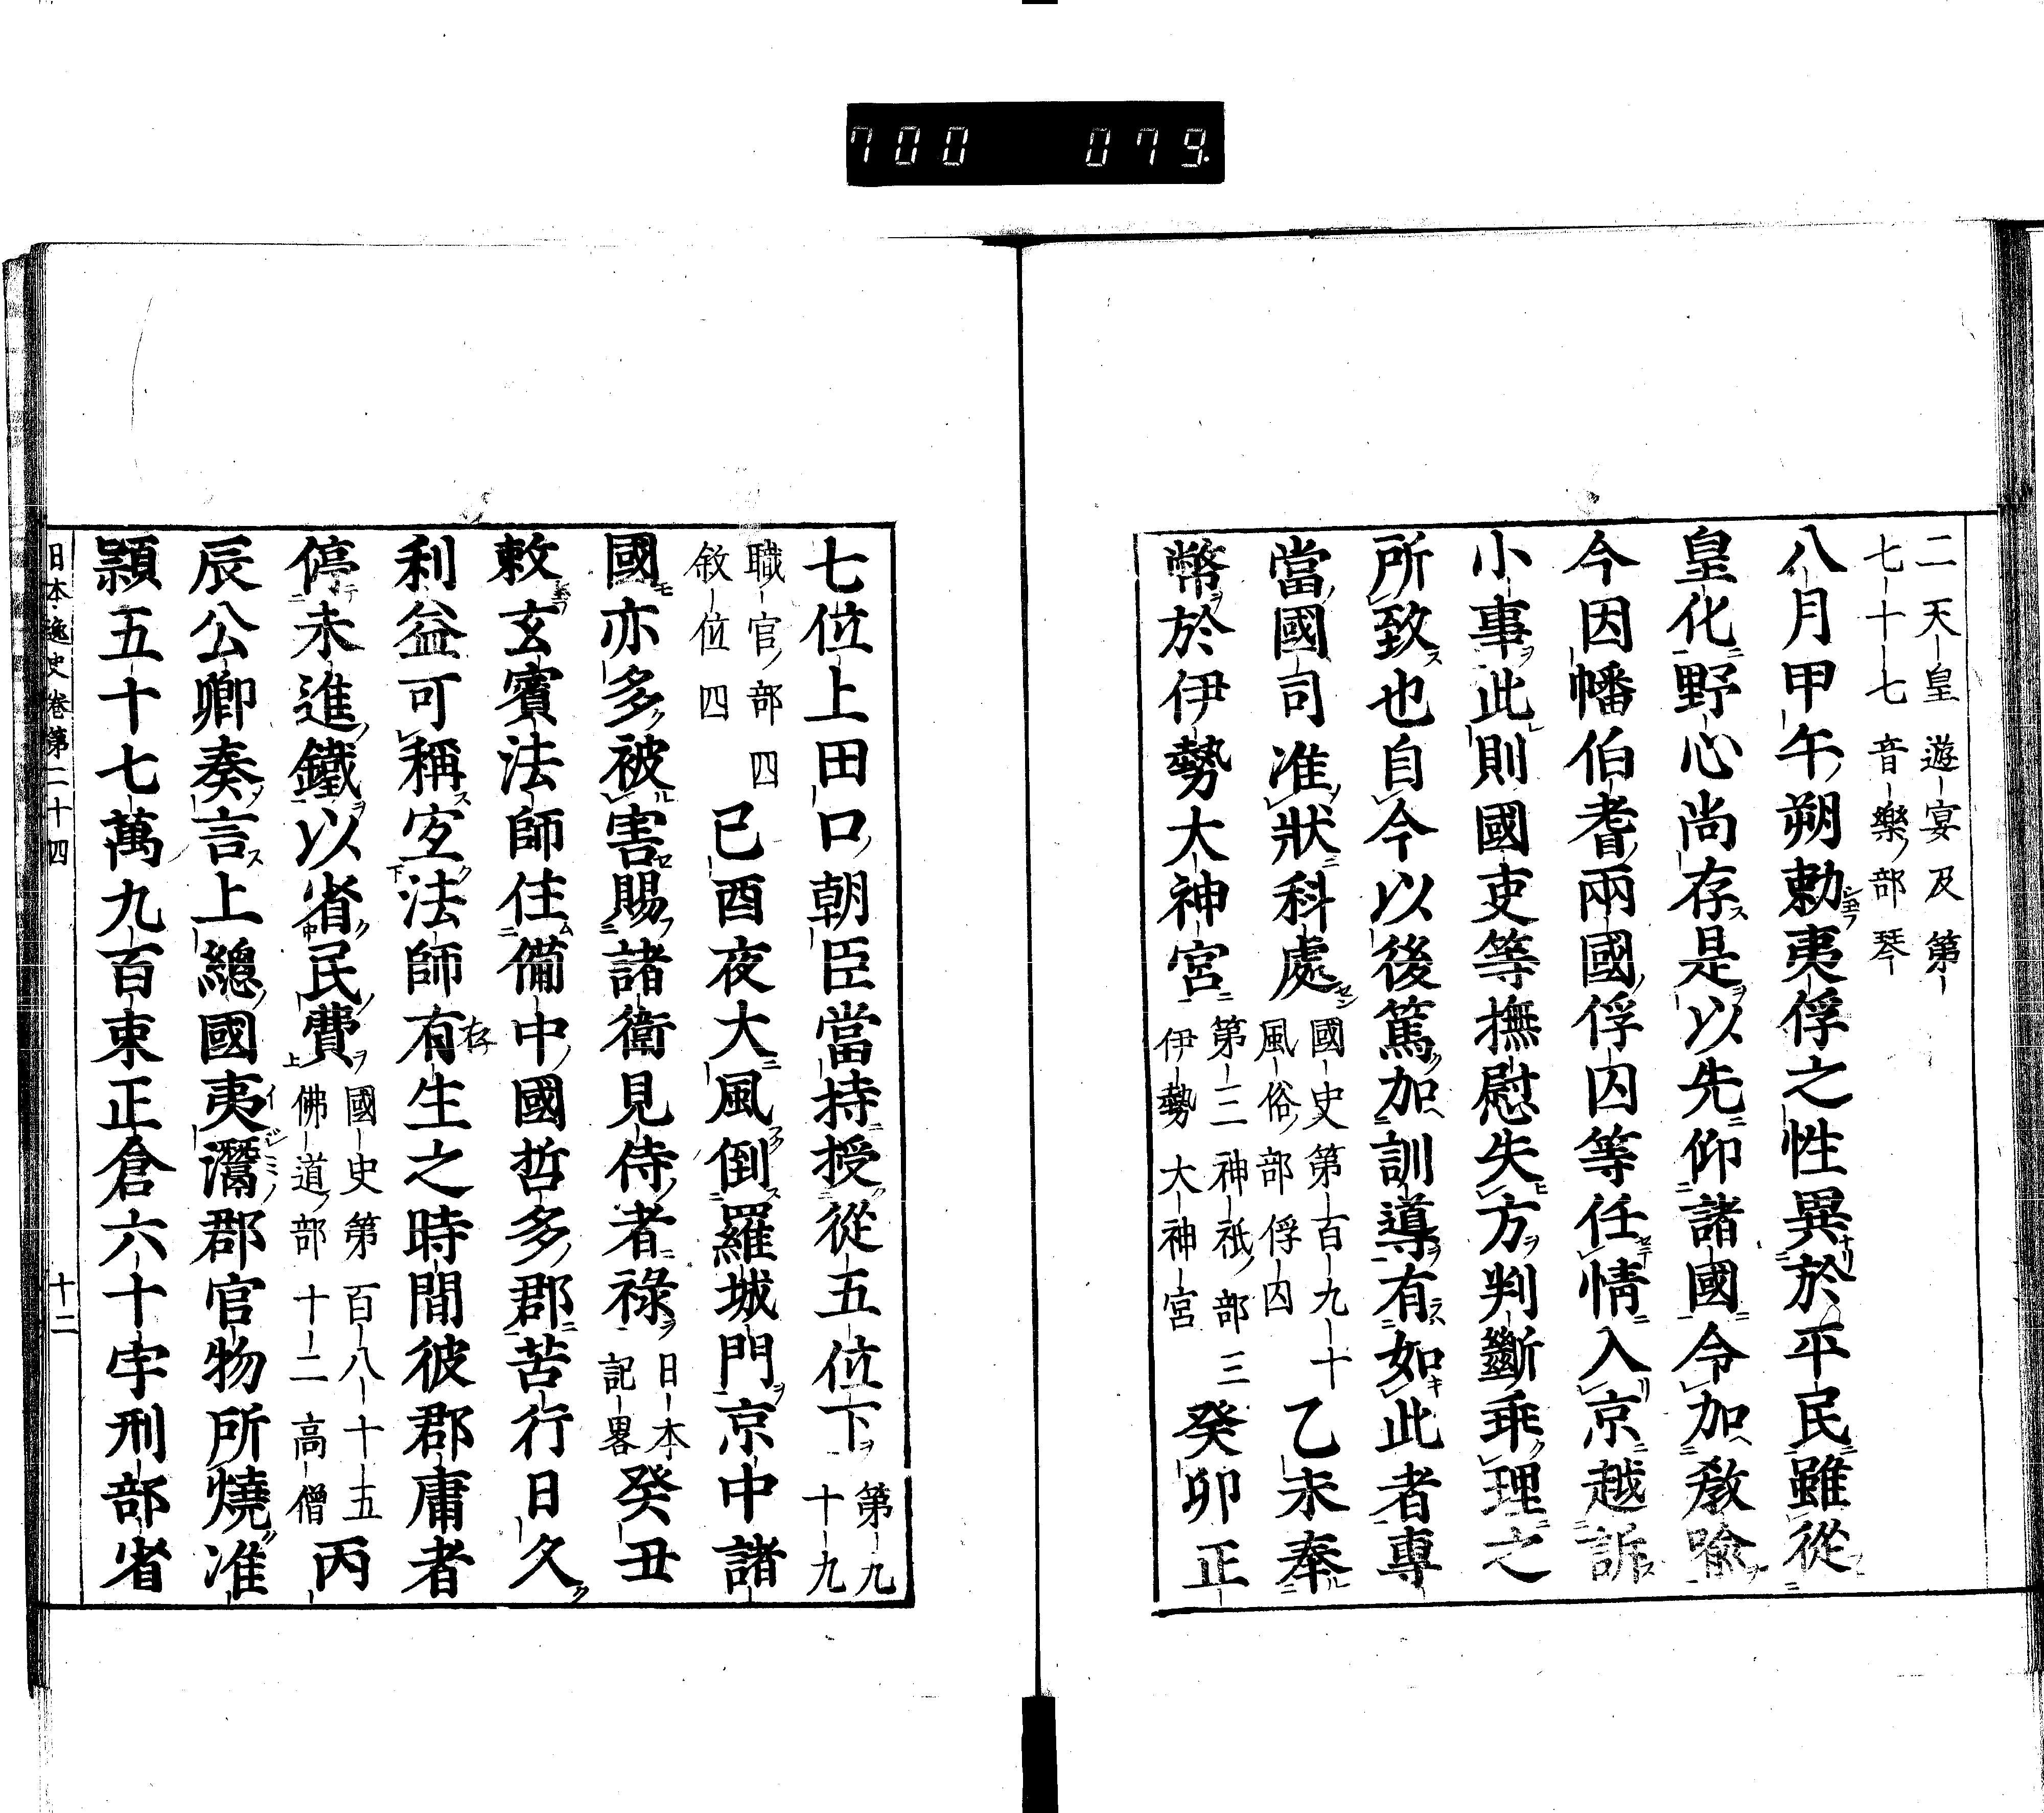 700 079.
二天皇遊宴及第
七十七音樂部琴
八月甲午朔勅夷俘之性異於平民雖從
皇化野心尚存是以先仰諸國令加教喩
今因幡伯耆兩國俘囚等任情入京越訴
小事此則國吏等撫慰失方判斷乖理之
所致也自今以後篤加訓導有如此者專
當國司准狀科處
國史第百九十
風俗部俘囚
乙未奉
幣於伊勢大神宮
第三神祇部三
伊勢大神宮
癸卯正
七位上田口朝臣當持授從五位下
第九
十九
職官部四
敘位四
己酉夜大風倒羅城門京中諸
國亦多被害賜諸衛見侍者祿
日本
記畧
癸丑
敕玄賓法師住備中國哲多郡苦行日久
利益可稱宜法師有生之時間彼郡庸者
停未進鐵以省民費
國史第百八十五
佛道部十二高僧
丙
辰公卿奏言上總國夷灊郡官物所燒准
穎五十七萬九百束正倉六十宇刑部省
日本逸史卷第二十四
十二